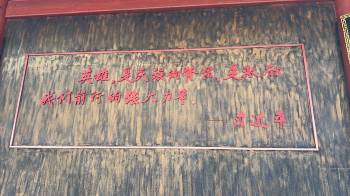 英雄，是民族的脊梁，是激励
我们前行的强大力量。
——习近平